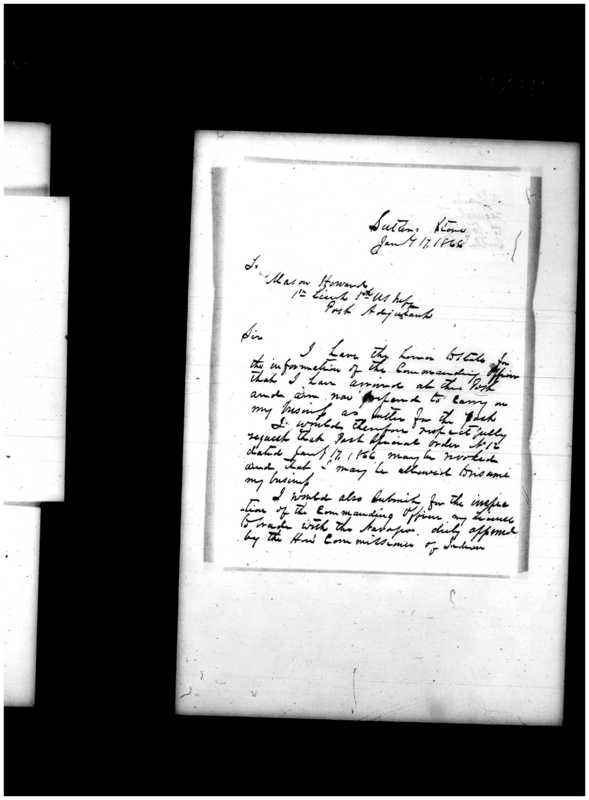 Sutlers Store
Jany 17, 1866
To
Mason Howard
1st Lieut 5th US Inf
Post Adjutant
Sir
I have the honor to state for
the information of the Commanding Officer
that I have arrived at this Post
and am now prepared to carry on
my business as sutler for the Post
I would therefore respectfully
request that Post Special Order No 12
dated Jany 17, 1866 may be revoked
and that I may be allowed to resume
my business
I would also submit for the inspec
tion of the Commanding Officer my License
to trade with the Navajoes, duly approved
by the Hon Commissioner of Indian